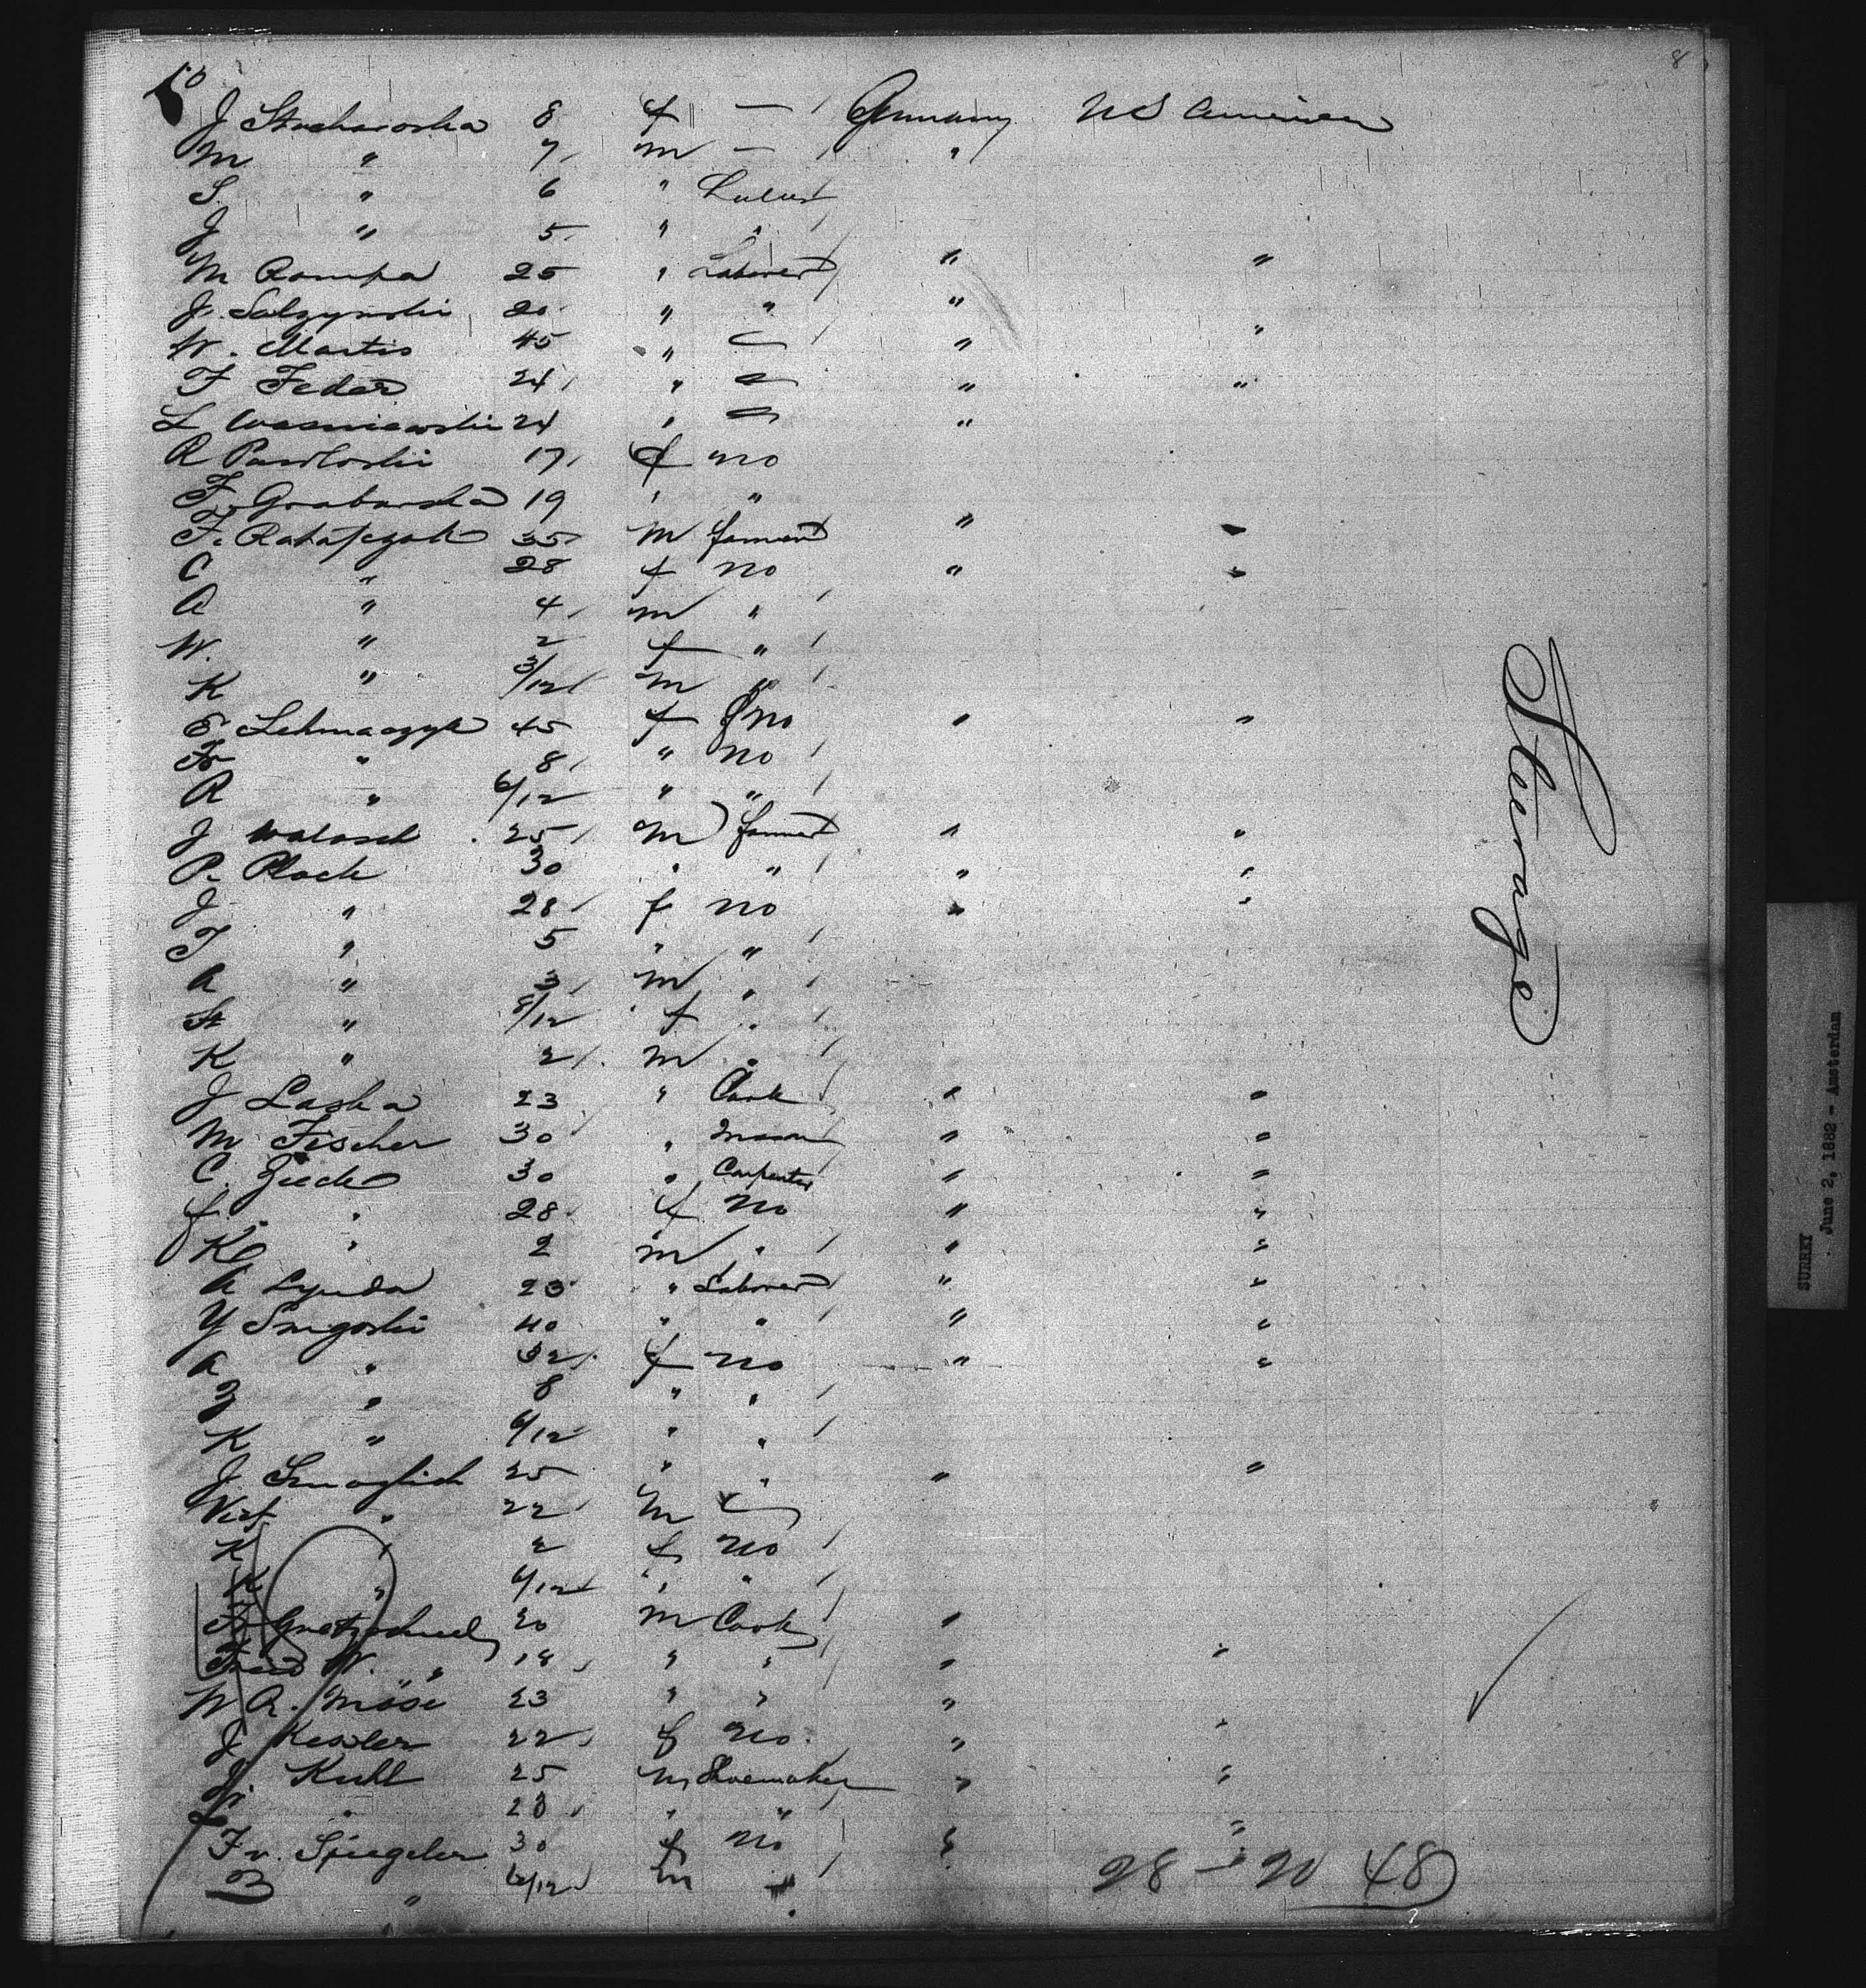 8
J Stachowska 8 f — Germany US America
M " 7 m — "
S. " 6 "
J " 5 " "
M Rompa 25 " Laborer " "
J. Salzynski 20 " " "
W. Martis 45 " " "
F Feder 24 " " "
L Wasniewski 24 " "
R Pawloski 17 f no
F. Grabarska 19 " "
F. Ratajczak 35 m farmer " "
C " 28 f no " "
A " 4 m "
W. " 2 f "
K " 3/12 m "
E Lehmaczyk 45 f no " "
Fr " 8 " no
R " 6/12 " "
J Walasch 25 m farmer " "
P. Plock 30 " " " "
J " 28 f no " "
T " 5 " "
A " 3 m "
St " 8/12 f "
K " 2 m "
J Laska 23 " Cook " "
M Fischer 30 " mason " "
C. Zieck 30 " Carpenter " "
f. " 28 f no " "
K " 2 m " " "
A Lynda 23 " Laborer " "
Y Smigoski 40 " " " "
A " 32 f no " "
B " 8 " "
K " 6/12 " "
J. Smoglich 25 " " " "
Vict " 22 m
K " 2 f no
K " 6/12 " "
20 m Cook "
Fried W. " 18 " " " "
W A. Möse 23 " " "
J Kesler 22 f no. " "
J Kuhl 25 m Shoemaker " "
" 28 " " "
F v. Spiegeler 30 f no "
B " 6/12 m "
28 — 20 48
Steerage
SURREY
June 2, 1882 - Amsterdam